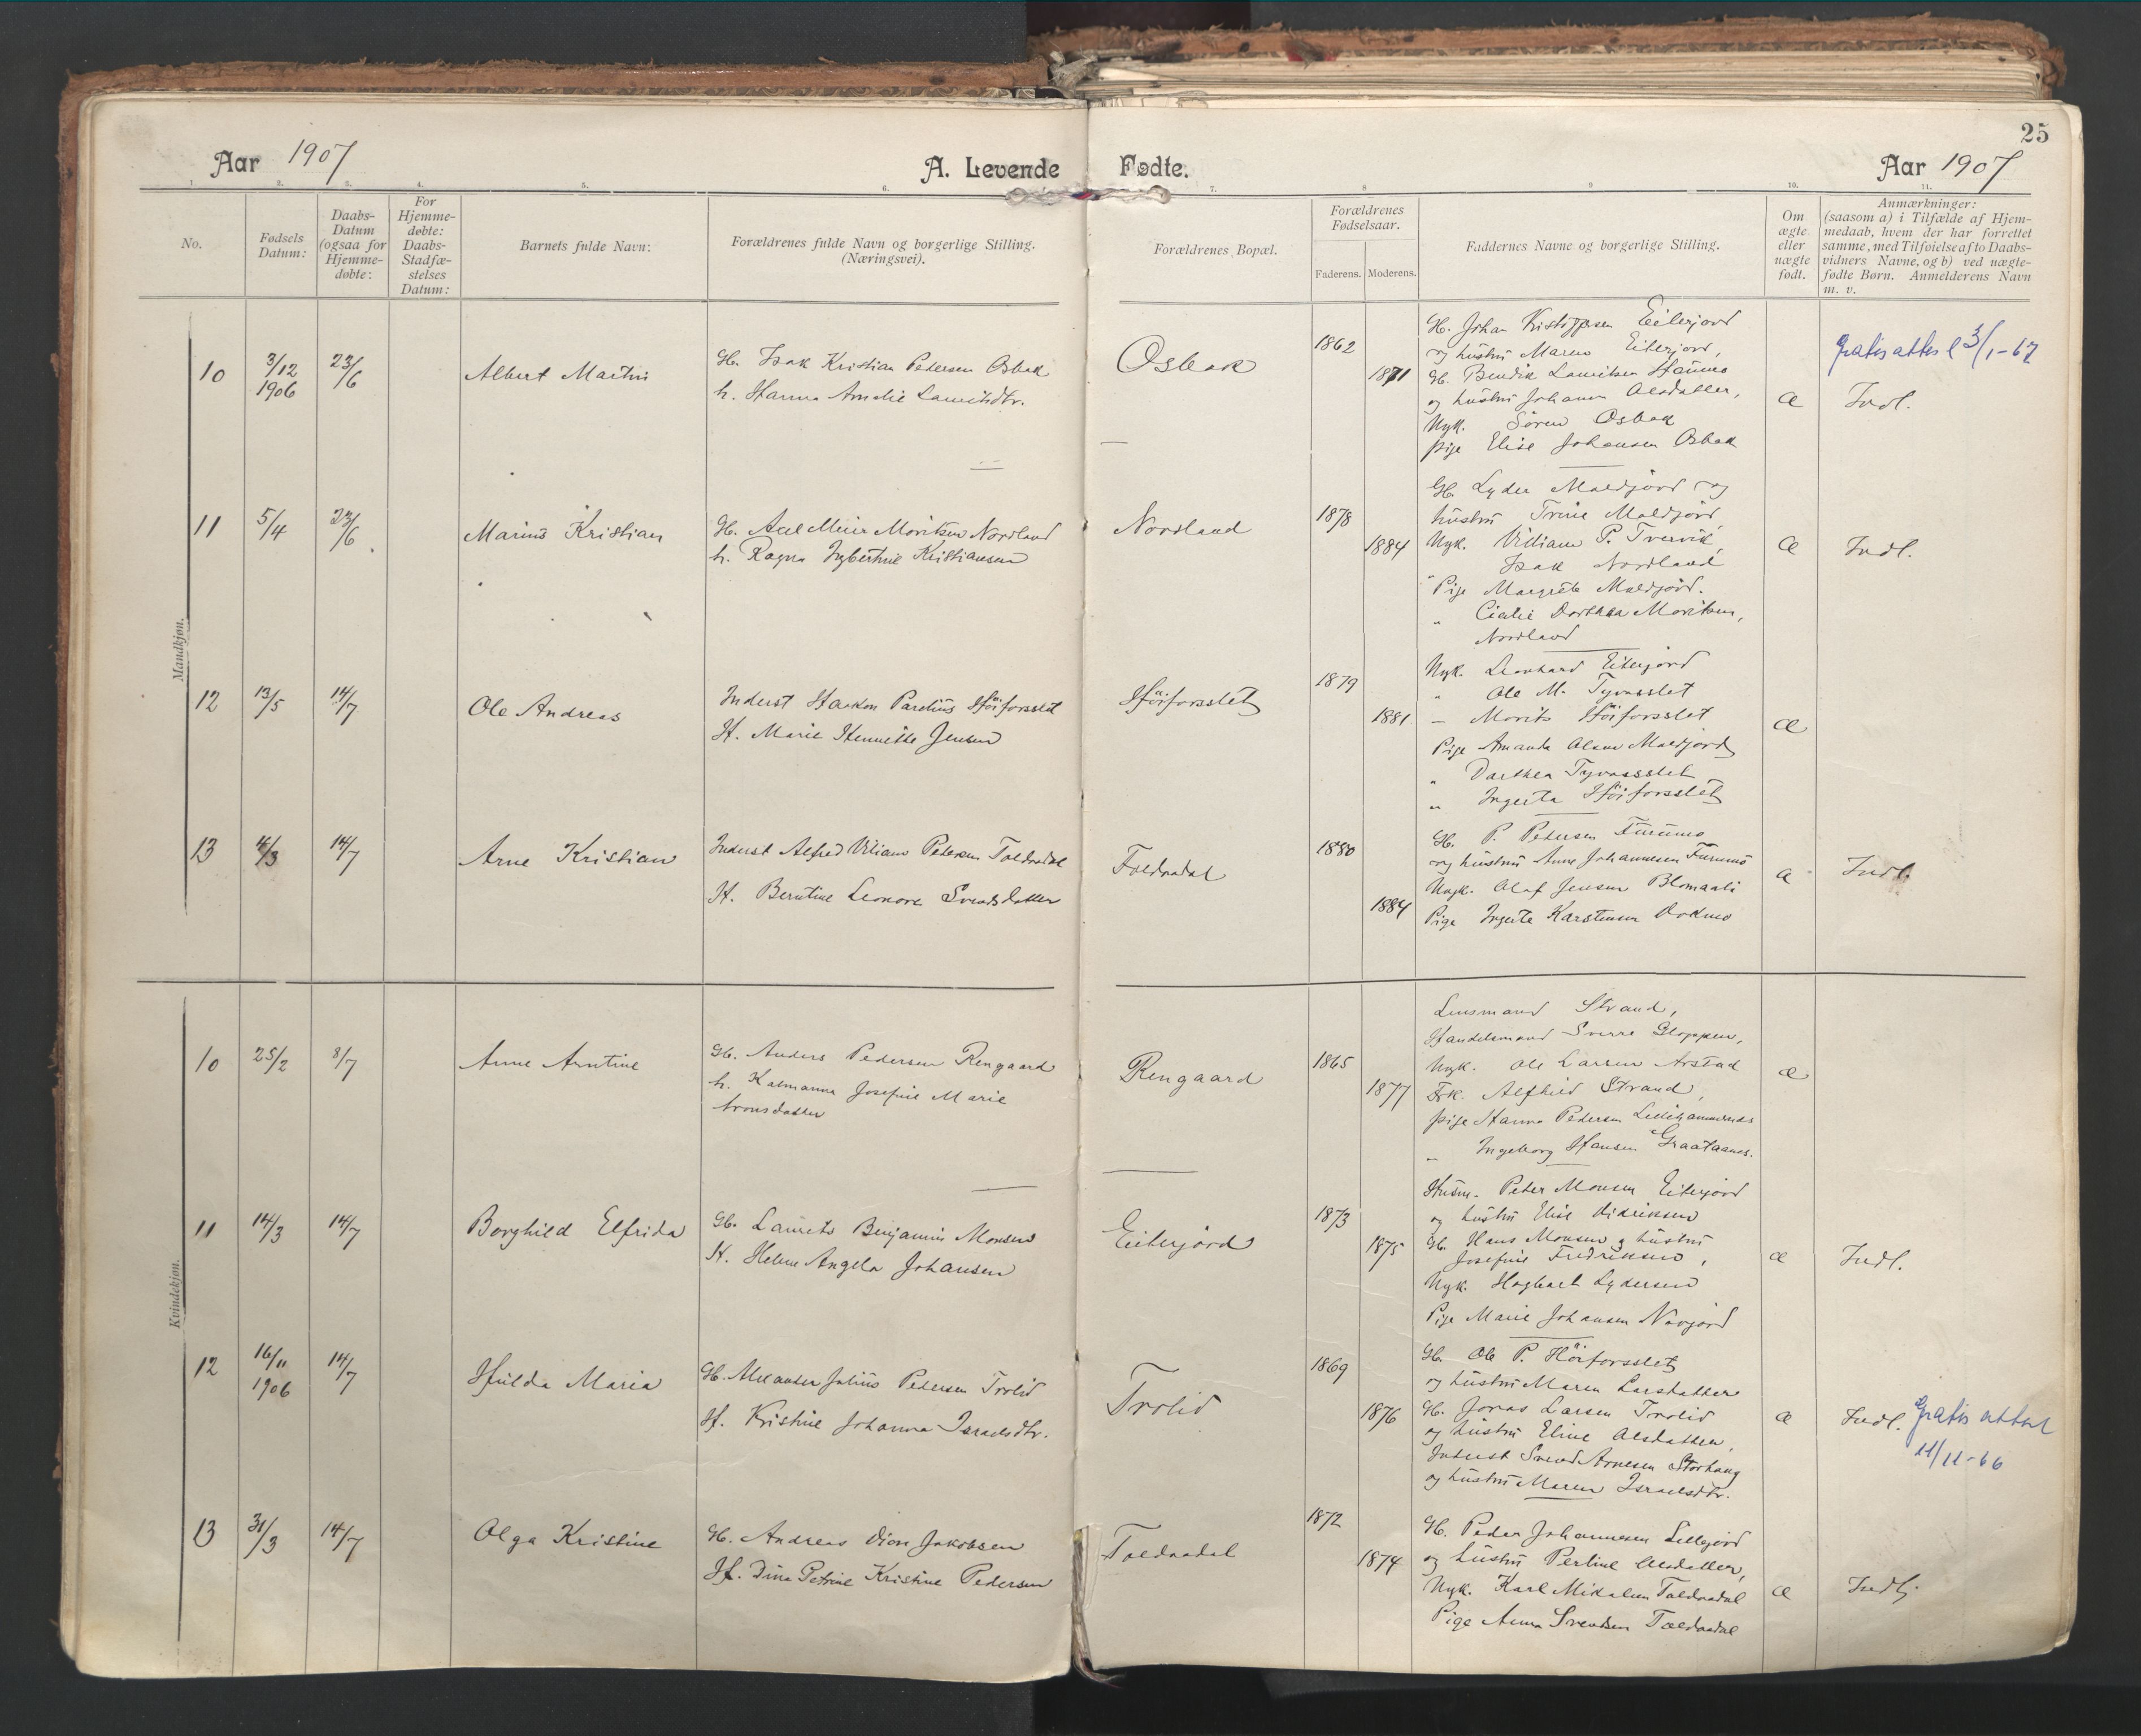 25
Aar 1907
A. Levende
Fødte.
Aar 1907
1. 2. 3. 4. 5. 6. 7. 8 9 10. 11.
No.
Fødsels Datum:
Daabs-
Datum
(ogsaa for
Hjemme-
døbte:
For
Hjemme-
døbte:
Daabs-
Stadfæ-
stelses
Datum:
Barnets fulde Navn:
Forældrenes fulde Navn og borgerlige Stilling.
(Næringsvei).
Forældrenes Bopæl.
Forældrenes
Fødselsaar.
Faderens. Moderens.
Faddernes Navne og borgerlige Stilling.
Om
ægte
eller
uægte
født.
Anmærkninger:
(saasom a) i Tilfælde af Hjem-
medaab, hvem der har forrettet
samme, med Tilføielse af to Daabs-
vidners Navne, og b) ved uægte-
fødte Børn. Anmelderens Navn
m. v.
Mandkjøn.
10 3/12 1906 23/6 Albert Martin
Gb. Isak Kristian Pedersen Osbak
h. Hanna Amalie Lauritsdtr.
Osbak
1862
1871
Gb. Johan Kristoffersen Eiterjord
og hustru Maren Eiterjord,
Gb. Bendik Lauritsen Staumo
og hustru Johanna Olsdatter,
Ugk. Sören Osbak
pige Elise Johansen Osbak
æ
Indl.
Gratis attest 3/1-67
11 5/4 23/6 Marius Kristian
Gb. Axel Meier Moritsen Nordland
h. Ragna Ingbertine Kristiansen
Nordland
1878
1884
Gb. Lyder Moldjord og
hustru Trine Moldjord,
Ugk. Villiam P. Tvervik,
Isak Nordland
Pige Margrete Moldjord.
" Cicilie Dorthea Moritsen,
Nordland
æ
Indl.
12 13/5 14/7 Ole Andreas
Inderst Haakon Parelius Höiforsslet
H. Marie Hennikke Jensen
Höiforsslet
1879
1881
Ugk. Leonhard Eiterjord
" Ole M. Tyvasslet
– Morits Höiforsslet
Pige Amanda Olsen Moldjord
" Dorthea Tyvassslet
" Ingerta Höiforsslet
æ
13 4/3 14/7 Arne Kristian
Inderst Alfred Viliam Petersen Toldaadal
H. Berntine Leonore Svendsdatter
Toldaadal
1880
1884
Gb. P. Petersen Furumo
og hustru Anne Johannesen Furumo
Ungk. Olaf Jensen Blomaali
Pige Ingerta Karstensen Dokmo
æ
Indl.
Kvindekjøn.
10 25/2 8/7 Anne Arntine
Gb. Anders Pedersen Rengaard
h. Kalmanna Josefine Marie
Aronsdatter
Rengaard
1865
1877
Lensmand Strand,
Handelsmand Sverre Gloppen,
Ugk. Ole Larsen Arstad
Frk. Alfhild Strand,
pige Hanna Pedersen
" Ingeborg Hansen Graataanes.
æ
11 14/3 14/7 Borghild Elfrida
Gb. Laurits Benjamin Monsen
H. Helene Angela Johansen
Eiterjord
1873
1875
Husm. Peter Monsen Eiterjord
og hustru Elise Didriksen
Gb. Hans Monsen og hustru
Josefine Fredriksen,
Ugk. Hagbart Lydersen
Pige Marie Johansen Navjord
æ
Indl.
12 16/11 1906 14/7 Hulda Maria
Gb. Alexander Julius Pedersen Trolid
H. Kristine Johanna Israelsdtr.
Trolid
1869
1876
Gb. Ole P. Höiforsslet
og hustru Maren Larsdatter
Gb. Jonas Larsen Trolid
og hustru Eline Olsdatter,
Inderst Svend Arnesen Storhaug
og hustru Maren Israelsdtr.
æ
Indl. Gratis attest
11/11-66
13 31/3 14/7 Olga Kristine
Gb. Andreas Dion Jakobsen
H. Dina Petrine Kristine Pedersen
Toldaadal
1872
1874
Gb. Peder Johannesen Lillejord
og hustru Perline Olsdatter,
Ugk. Karl Mikalsen Toldaadal
Pige Anna Svendsen Toldaadal
æ
Indl.